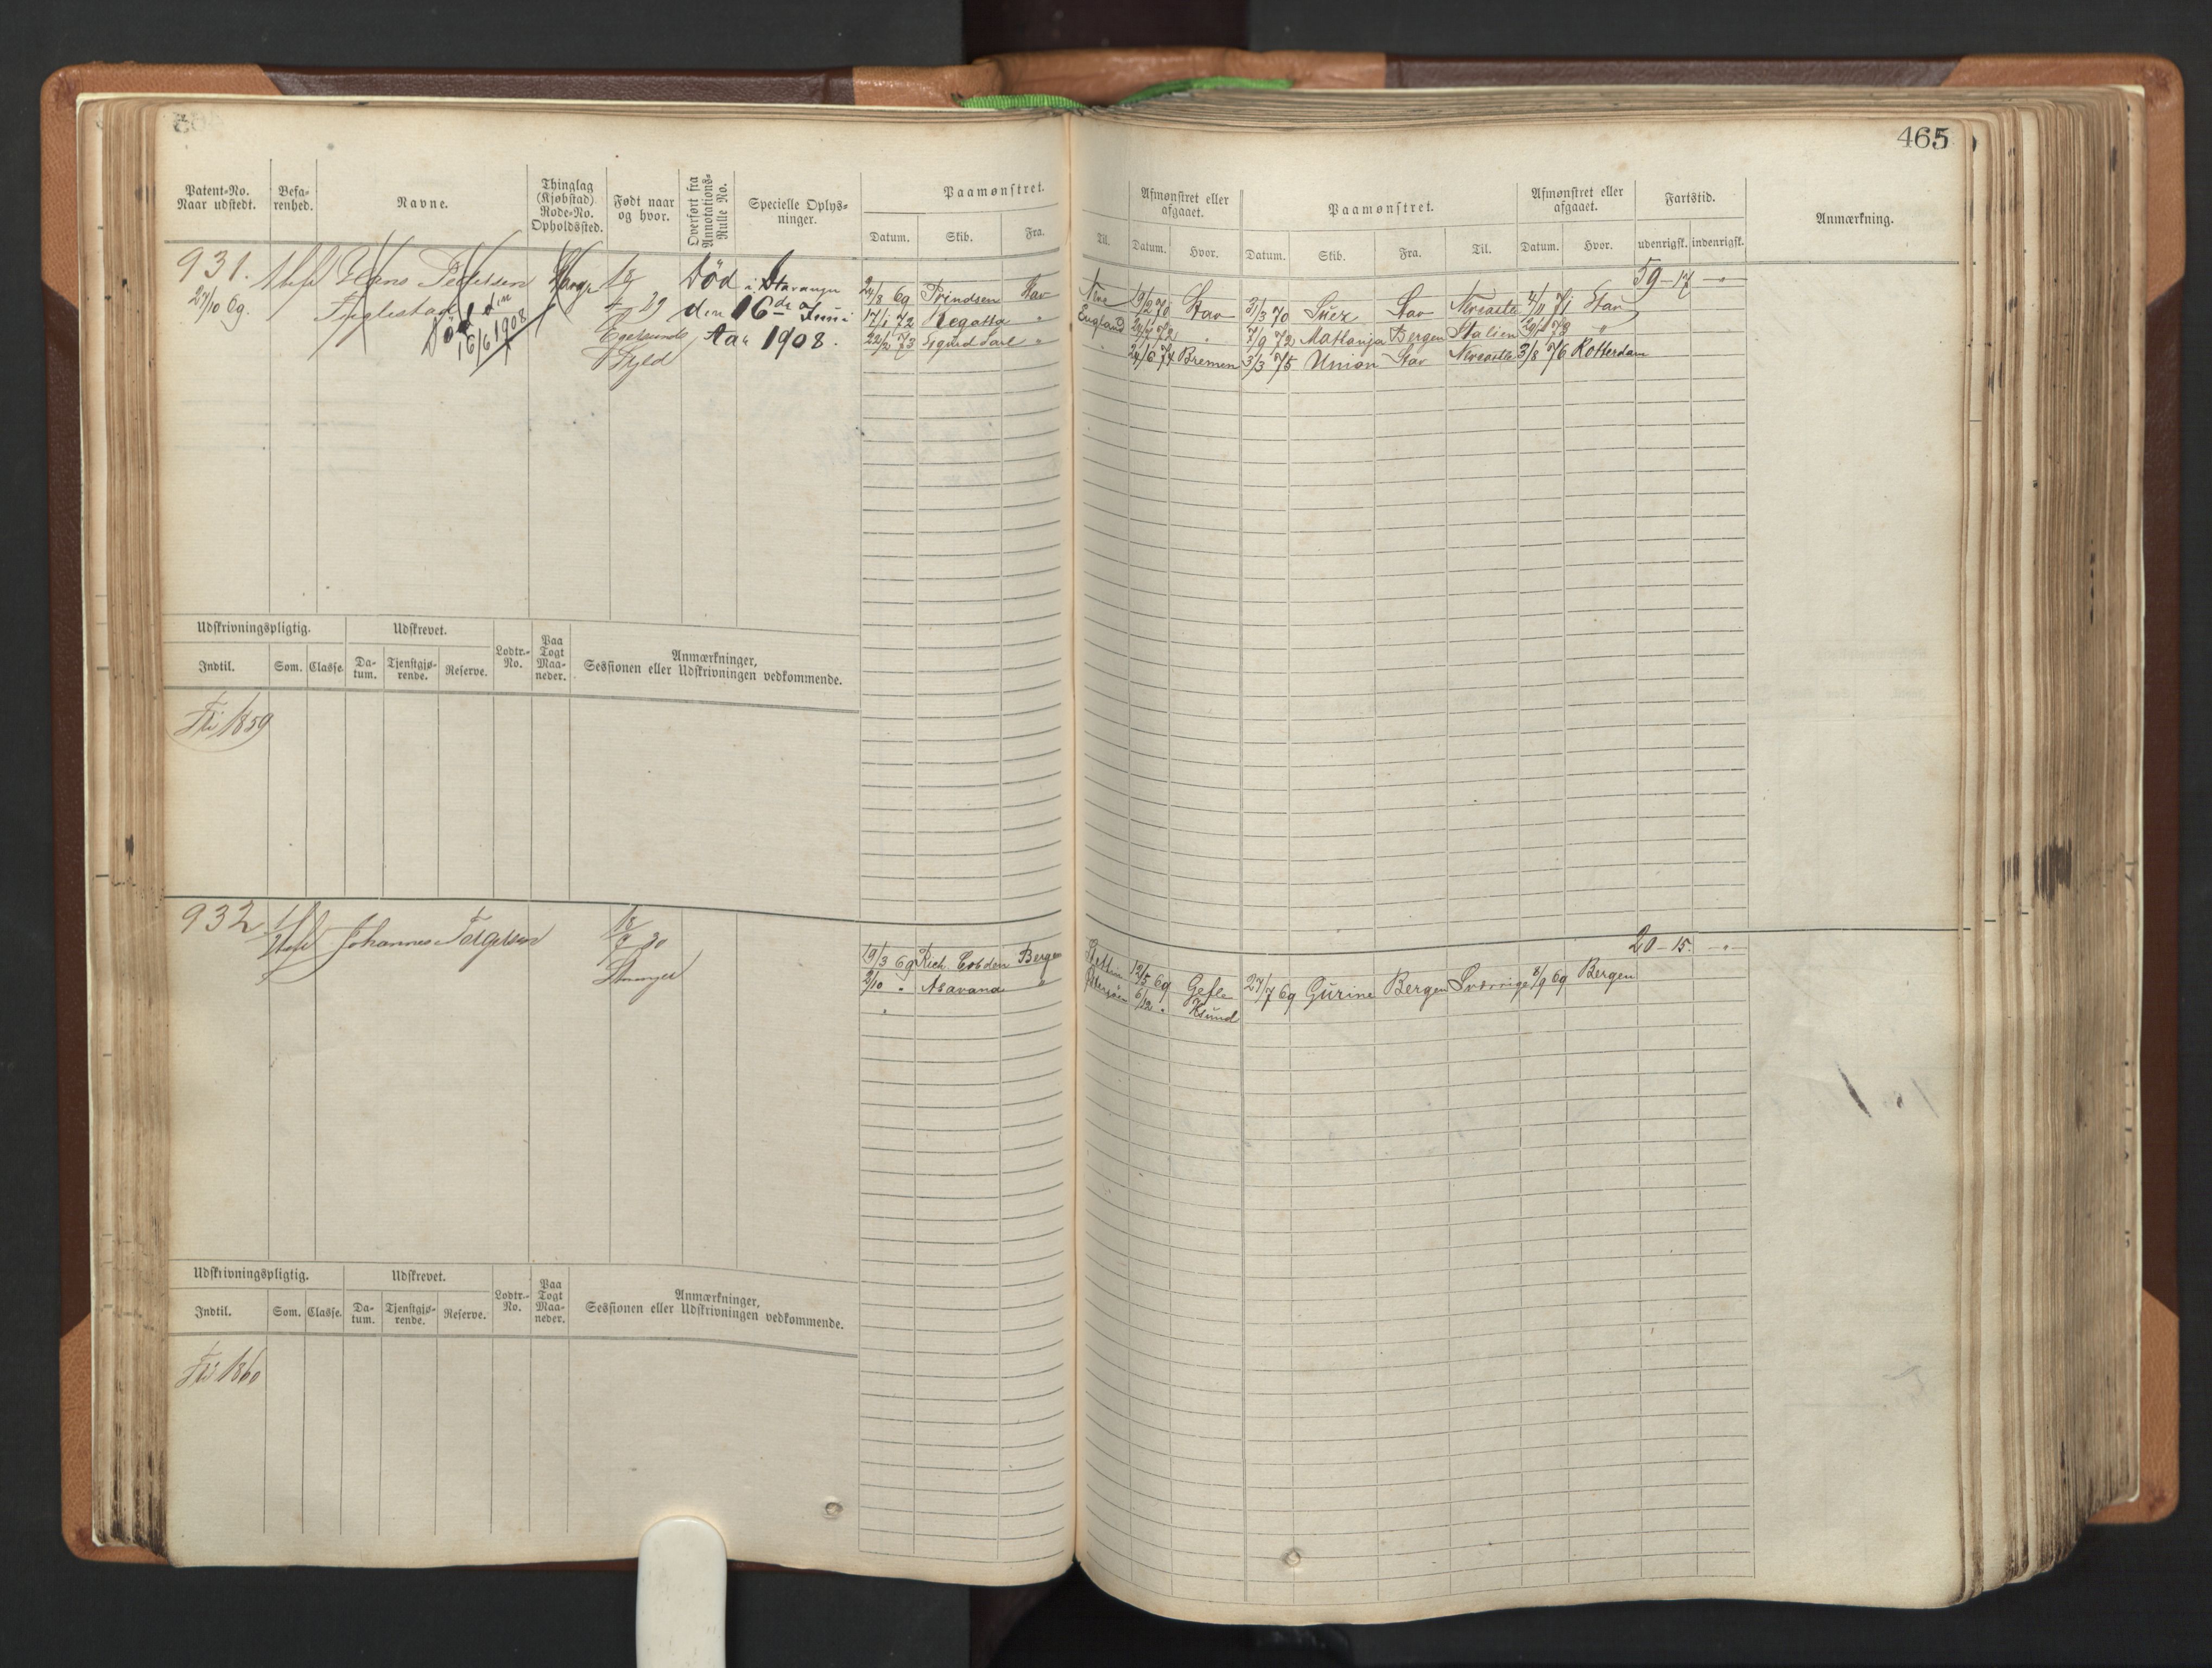 465
Patent-No. Naar udstedt.
Befarenhed.
Navne.
Thinglag (Kjøbstad) Rode-No. Opholdssted.
Født naar og hvor.
Overført fra Annotations-Rulle No.
Specielle Oplysninger.
Paamønstret.
Datum. Skib. Fra.
Til.
Afmønstret eller afgaaet.
Datum. Hvor.
Paamønstret.
Datum. Skib. Fra. Til.
Afmønstret eller afgaaet.
Datum. Hvor.
Fartstid.
udenrigsk. indenrigsk.
Anmærkning.
931.
27/10 69.
Hans Pedersen
Død den 16/6 1908
Død i Stavanger
den 16de Juni
Aar 1908.
Egersunds
59-17 -"-
24/8 69 Prindsen Stav
19/2 70 Stav 31/3 70 Suez Stav Newcastle 4/11 71 Stav
17/1 72 Regatta "
England "
7/9 72 Bergen Italien "
22/2 73 "
24/6 74 Bremen 3/3 75 Union Stav Newcastle 3/8 76 Rotterdam
Udskrivningspligtig. Udskrevet.
Indtil. Som. Classe. Datum. Tjenstgjørende. Reserve. Lodtr.-No. Paa Togt Maaneder.
Anmærkninger, Sessionen eller Udskrivningen vedkommende.
Fri 1859
932
Johannes Torgersen
20-15. -"-
19/3 69 Rich. Cobden Bergen
Stettin 12/5 69 Gefle 27/7 69 Gurine Bergen Sverrige 8/9 69 Bergen
2/10 " "
Østersjøen 6/12 " Ksund
Udskrivningspligtig. Udskrevet.
Indtil. Som. Classe. Datum. Tjenstgjørende. Reserve. Lodtr.-No. Paa Togt Maaneder.
Anmærkninger, Sessionen eller Udskrivningen vedkommende.
Fri 1860